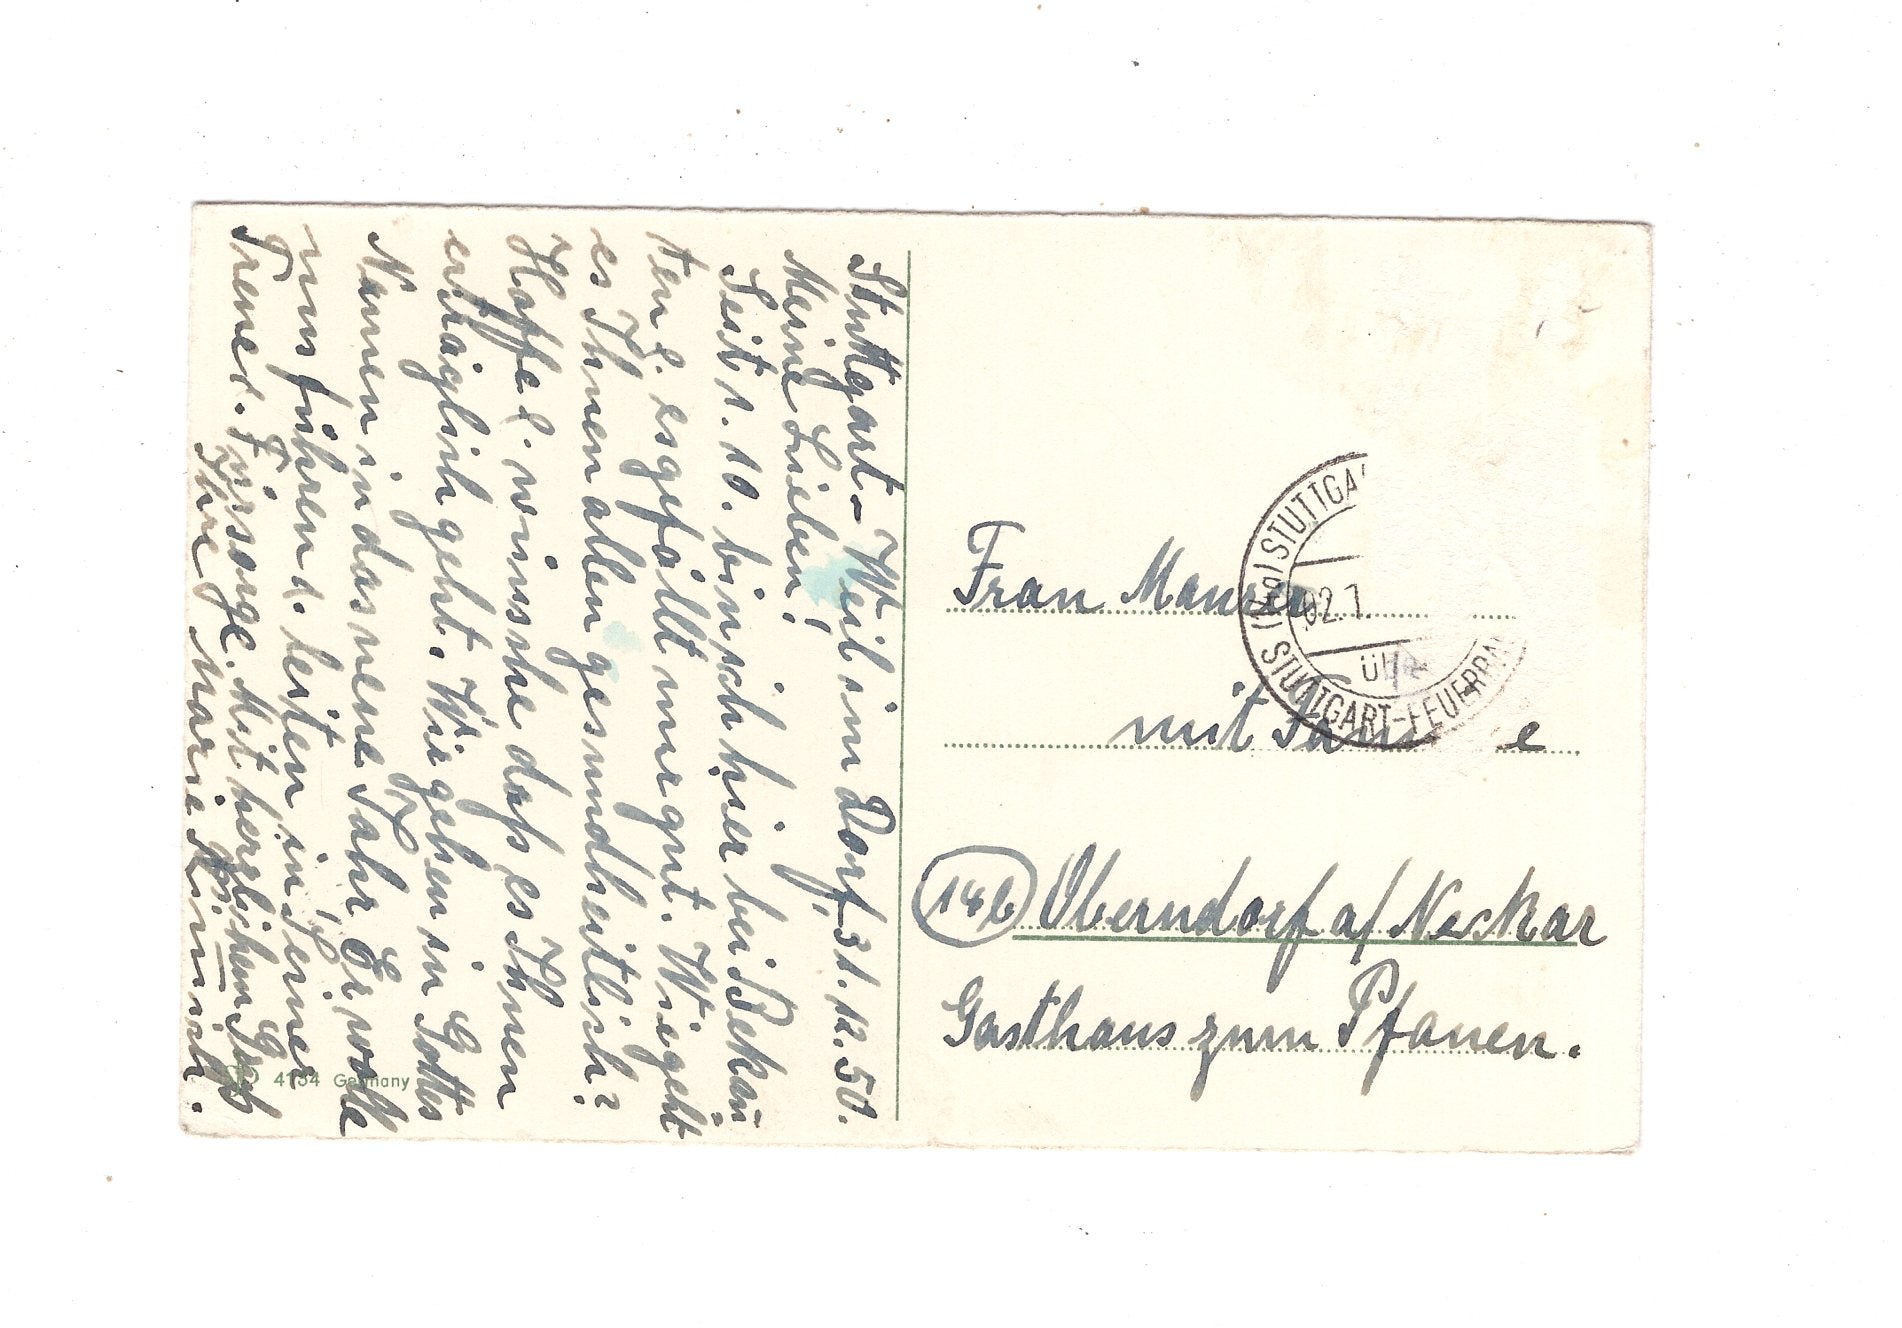 Stuttgart-Weil im Dorf, 31.12.50.
Meine Lieben!
Seit 1.10. bin ich hier bei Bekann
ten &. es gefällt mir gut. Wie geht
es Ihnen allen gesundheitlich?
Hoffe &. wünsche daß es Ihnen
erträglich geht. Wir gehen in Gottes
Namen in das neue Jahr. Er wolle
uns führen &. leiten in seiner
Treue &. Fürsorge. Mit herzlichem Gruß
Ihre Marie
4134 Germany
Frau Maurer
mit Fam e
14b Oberndorf a/Neckar
Gasthaus zum Pfauen.
(14a) STUTTGA
02.1.
üb
STUTTGART-FEUERBA